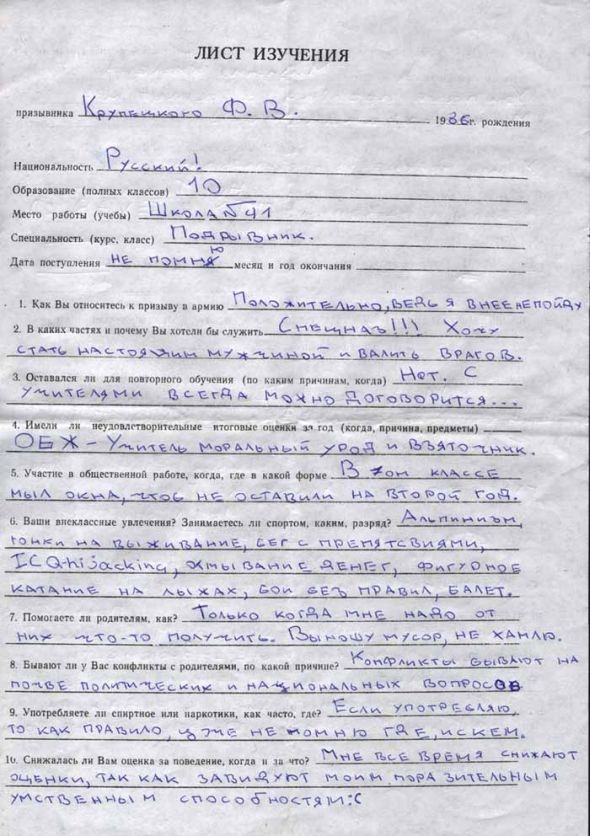 ЛИСТ ИЗУЧЕНИЯ
призывника Крупецкого Ф. В. 1986г. рождения
Национальность Русский!
Образование (полных классов) 10
Место работы (учебы) Школа №41
Специальность (курс, класс) Подрывник.
Дата поступления не помню месяц и год окончания
1. Как Вы относитесь к призыву в армию Положительно, ведь я в нее не пойду
2. В каких частях и почему Вы хотели бы служить Спецназ!!! Хочу
стать настоящим мужчиной и валить врагов.
3. Оставался ли для повторного обучения (по каким причинам, когда) Нет. С
учителями всегда можно договорится...
4. Имели ли неудовлетворительные итоговые оценки за год (когда, причина, предметы)
ОБЖ – Учитель моральный урод и взяточник.
5. Участие в общественной работе, когда, где в какой форме В 7ом классе
мыл окна, чтоб не оставили на второй год.
6. Ваши внеклассные увлечения? Занимаетесь ли спортом, каким, разряд? Альпинизм,
гонки на выживание, бег с препятсвиями,
ICQ-hijacking, отмывание денег, фигурное
катание на лыжах, бои без правил, балет.
7. Помогаете ли родителям, как? Только когда мне надо от
них что-то получить. Выношу мусор, не хамлю.
8. Бывают ли у Вас конфликты с родителями, по какой причине? Конфликты бывают на
почве политических и национальных вопросов
9. Употребляете ли спиртное или наркотики, как часто, где? Если употребляю,
то как правило, уже не помню где, и с кем.
10. Снижалась ли Вам оценка за поведение, когда и за что? Мне все время снижают
оценки, так как завидуют моим поразительным
умственным способностям:(